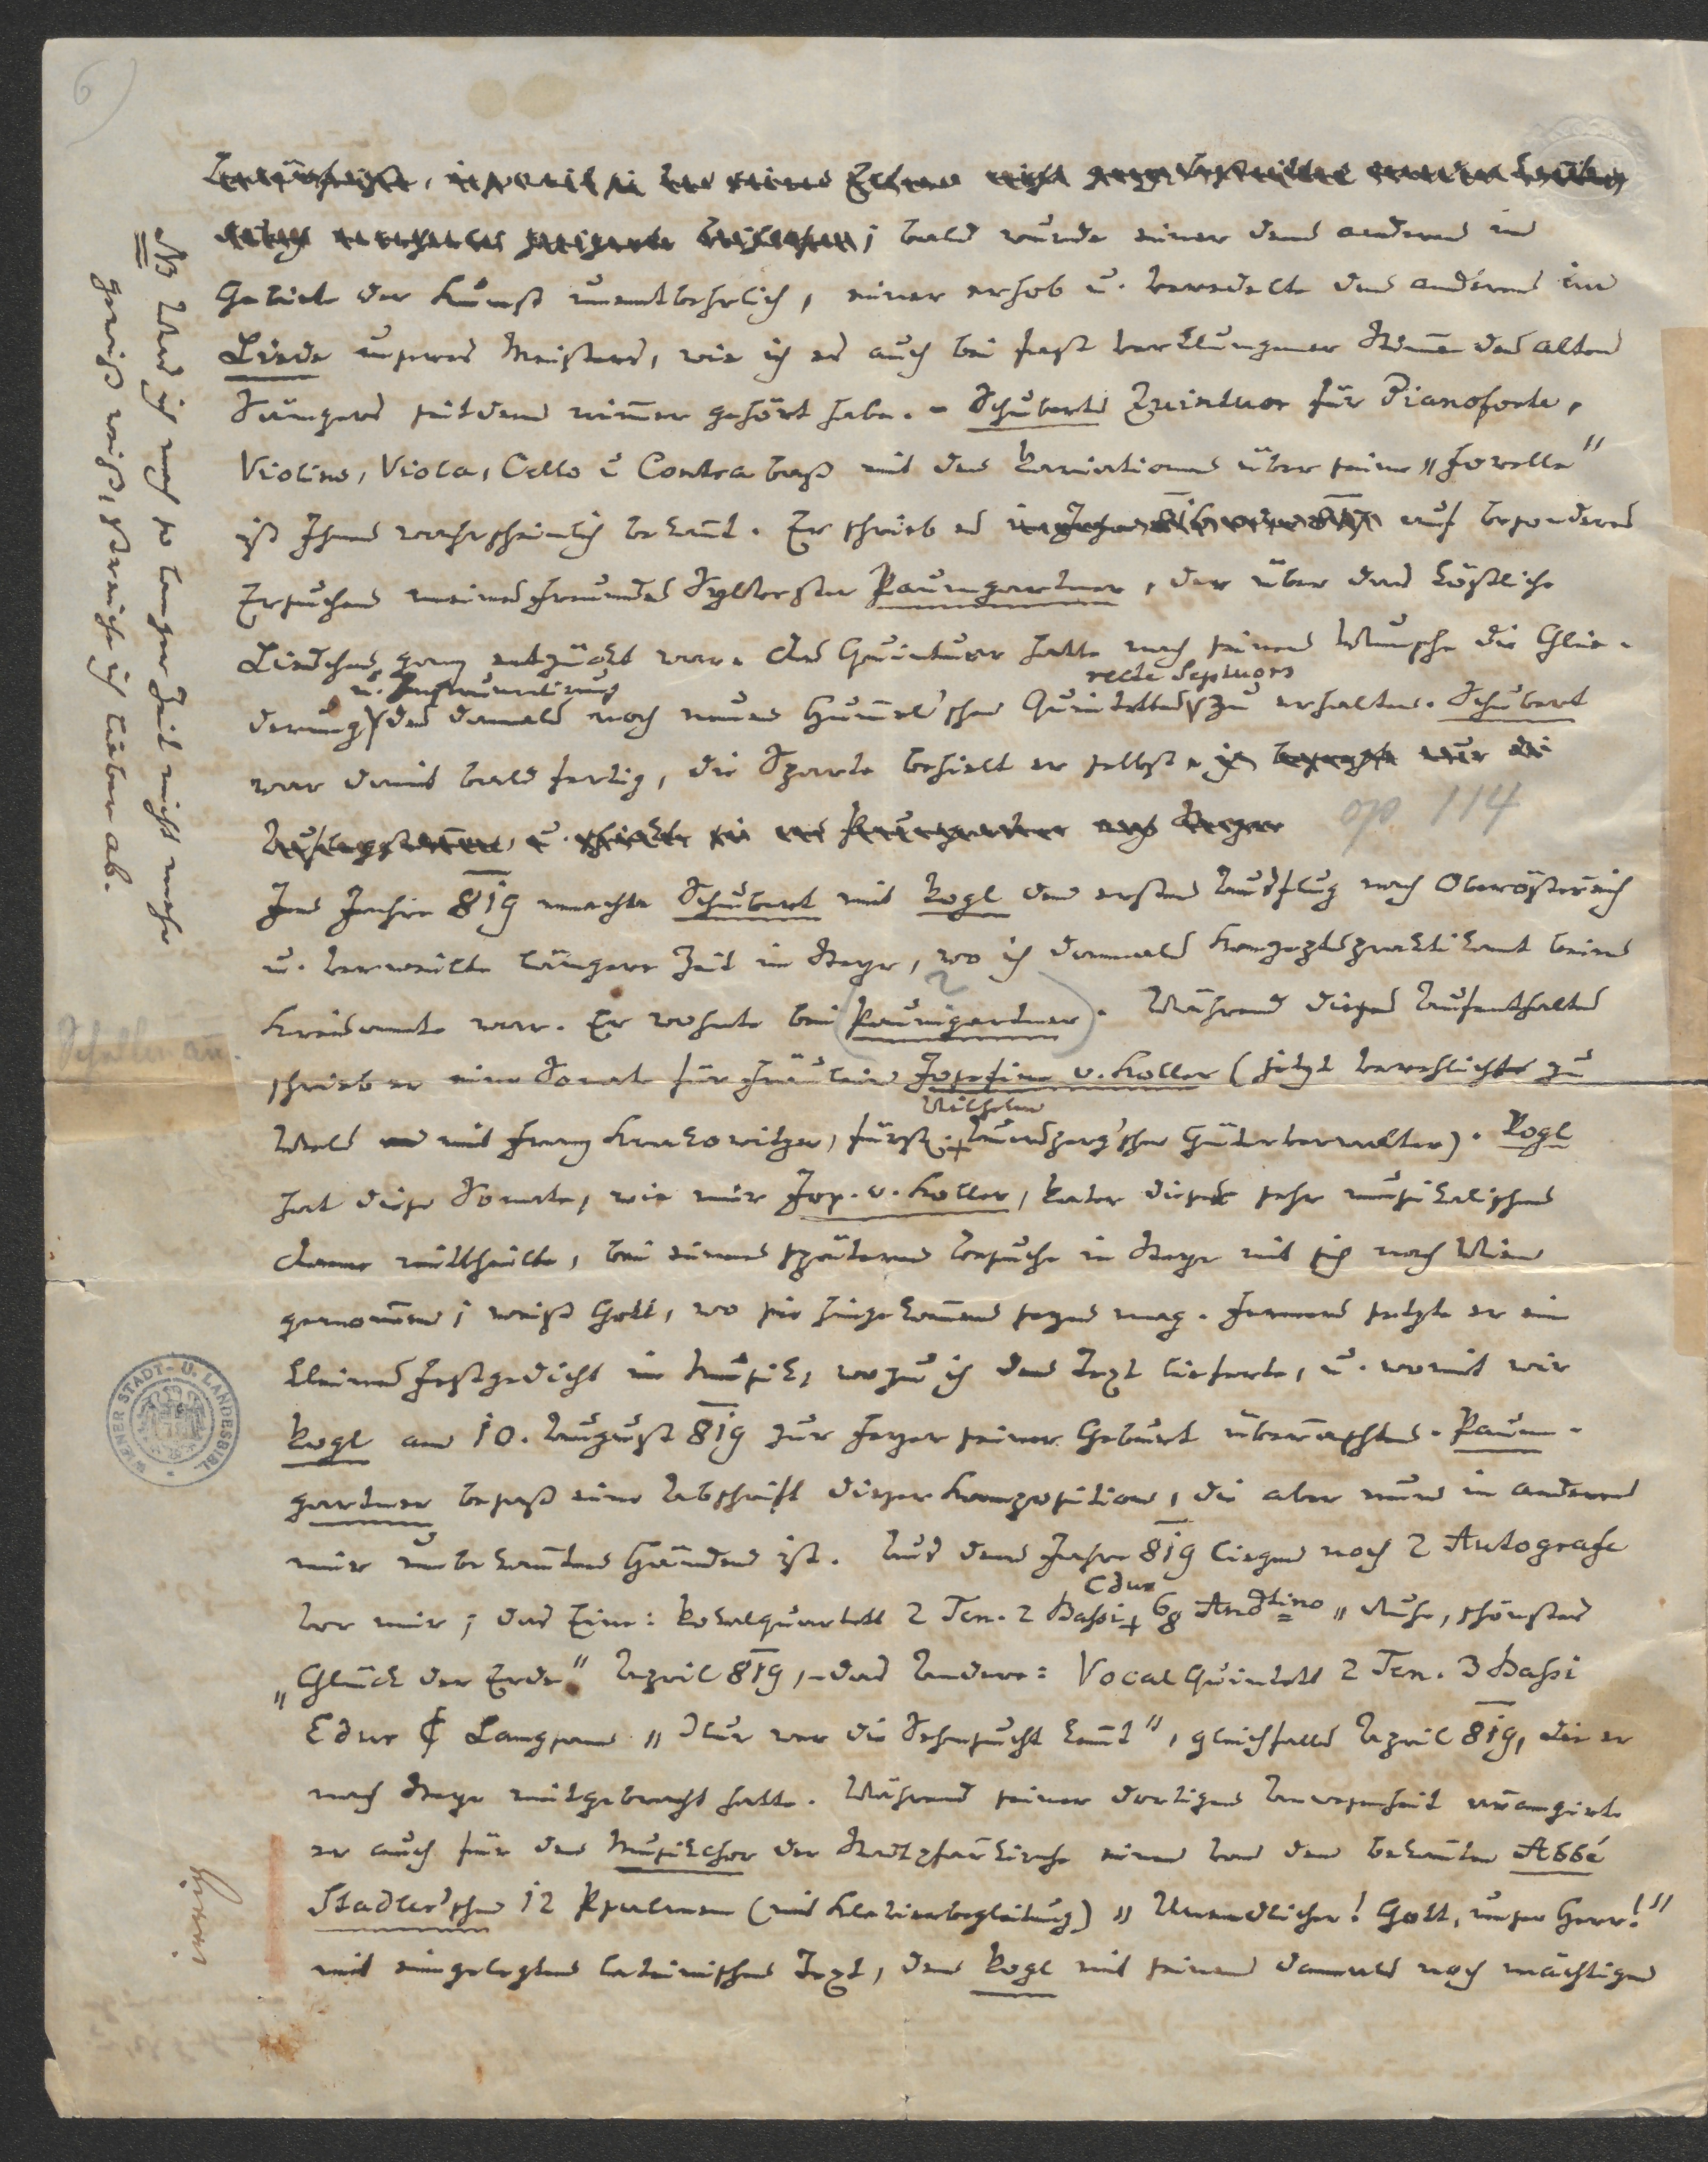 6)
bald wurde einer dem anderen im
Gebiete der Kunst unentbehrlich, einer erhob u. veredelte den anderen im
Liede unseres Meisters, wie ich es auch bei fast verklungener Stimme des alten
Sängers seitdem nimmer gehört habe. – Schuberts Quintuor für Pianoforte,
Violine, Viola, Cello u Contrabaß mit den Variationen über seine „Forelle"
ist Ihnen wahrscheinlich bekannt. Er schrieb es auf besonderes
Ersuchen meines Freundes Sylvester Paumgartner, der über das köstliche
Liedchen ganz entzückt war. Das Quintuor hatte nach seinem Wunsche die Glie-
u. Instrumentirung recte Septuors
derung des damals noch neuen Hummel'schen Quintettes zu erhalten. Schubert
war damit bald fertig, die Sparte behielt er selbst.
op. 114
Im Jahre 819 machte Schubert mit Vogl den ersten Ausflug nach Oberösterreich
u. verweilte längere Zeit in Steyr, wo ich damals Konzeptspraktikant beim
Kreisamte war. Er wohnte bei (Paumgartner). Während dieses Aufenthaltes
Schellmann.
schrieb er eine Sonate für Fräulein Josefine v. Koller (jetzt verehlicht zu
Wilhelm
Wels mit Franz Krakowitzer, fürstl. Auersperg'scher Güterverwalter). Vogl
hat diese Sonate, wie mir Jos. v. Koller, Vater dieser sehr musikalischen
Dame mittheilte, bei einem späteren Besuche in Steyr mit sich nach Wien
genommen; weiß Gott, wo sie hingekommen seyn mag. Ferner setzte er ein
kleines Festgedicht in Musik, wozu ich den Text lieferte, u. womit wir
Vogl am 10. August 819 zur Feyer seiner Geburt überraschten. Paum-
gartner besaß eine Abschrift dieser Komposition, die aber nun in anderen
mir unbekannten Händen ist. Aus dem Jahre 819 liegen noch 2 Autografe
Cdur
vor mir; das Eine: Vokalquartett 2 Ten. 2 Bassi 6/8 Andtino „Ruhe, schönstes
„Glück der Erde" April 819, – das Andere: Vocal Quintett 2 Ten. 3 Bassi
Edur ¢ Langsam „Nur wer die Sehnsucht kennt", gleichfalls April 819, die er
nach Steyr mitgebracht hatte. Während seiner dortigen Anwesenheit arrangirte
er auch für den Musikchor der Stadtpfarrkirche einen von den bekannten Abbé
Stadler'schen 12 Psalmen (mit Klavierbegleitung) „Unendlicher! Gott, unser Herr!"
mit eingelegtem lateinischen Text, den Vogl mit seiner damals noch mächtigen
NB Was ich nach so langer Zeit nicht mehr
gewiß weiß, streiche ich lieber ab.
WIENER STADT- U. LANDESBIBL.